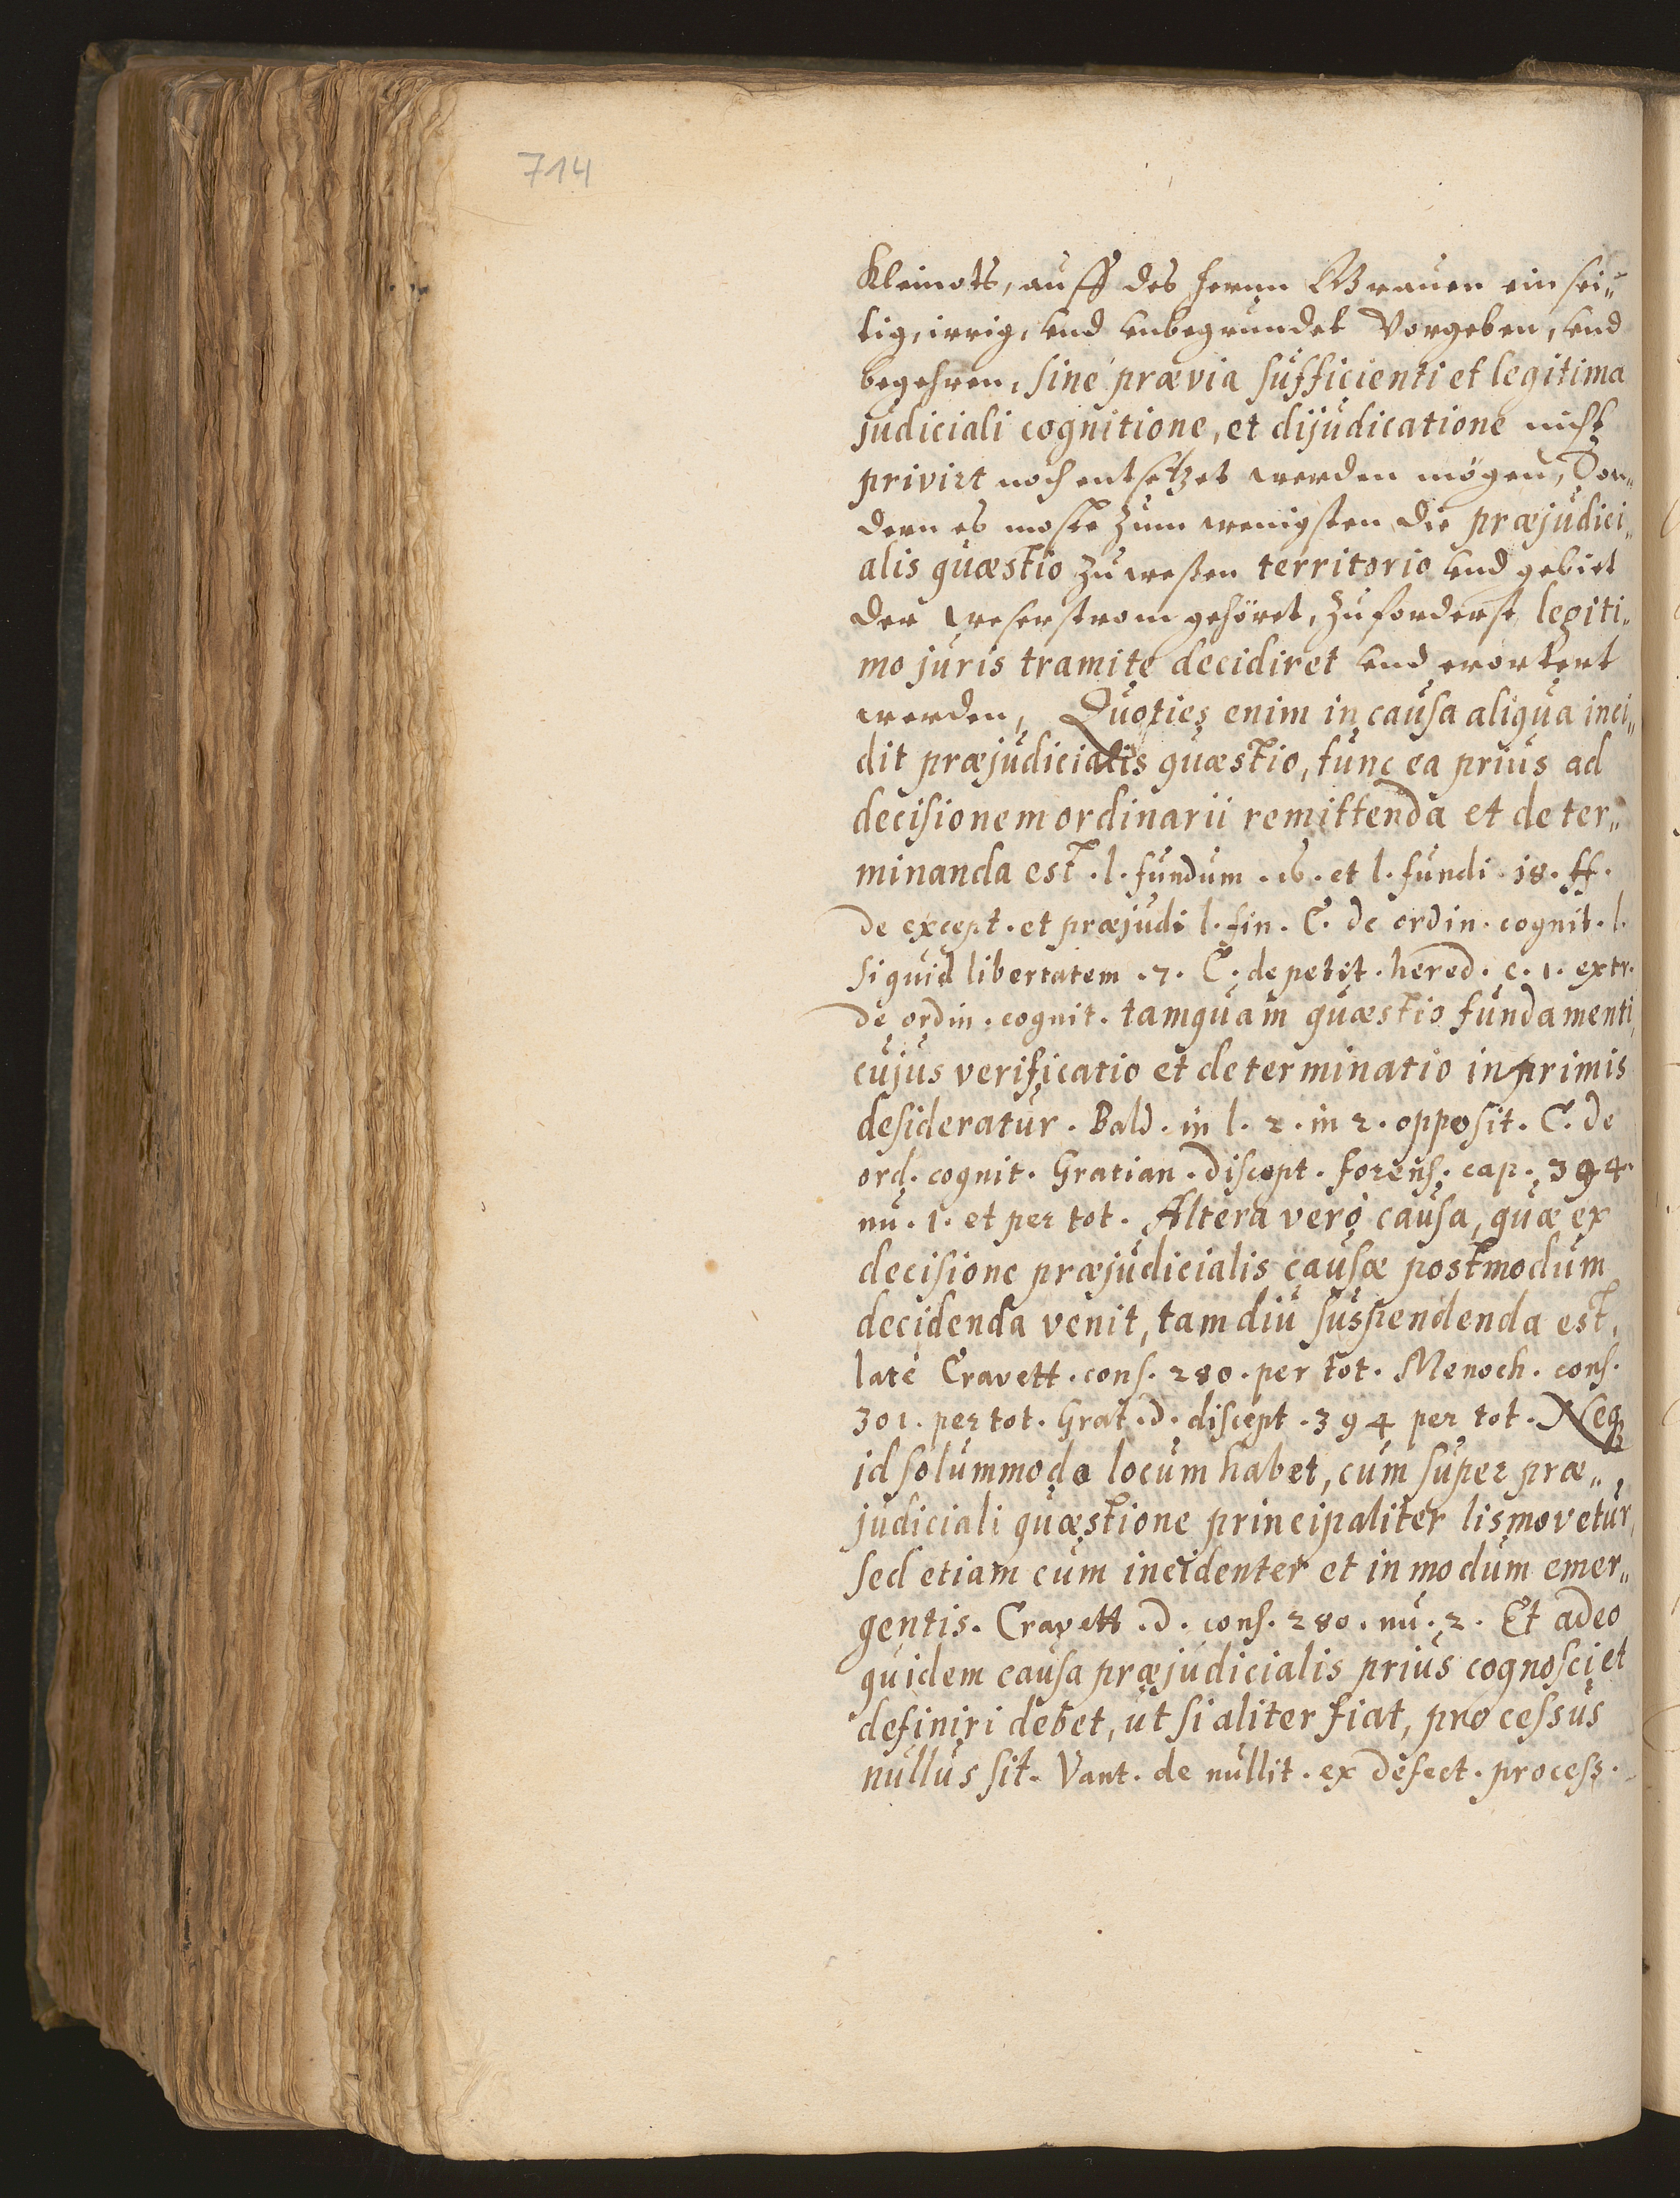 714
Kleinots, auff des herrn Graven ein sei„
tig, irrig, und unbegrundet Vorgeben, und
begehren, sine prævia sufficienti et legitima
judiciali cognitione, et dijudicatione nicht
privirt noch entsetzet werden mögen, Son„
dern es moste zum wenigsten die præjudici„
alis quæstio zu weßen territorio und gebiet
der Weserstrom gehöret, zuforderst legiti„
mo juris tramite decidiret und erortert
werden, Quoties enim in causa aliqua inci„
dit præjudicialis quæstio, tunc ea prius ad
decisionem ordinarii remittenda et deter„
minanda est. l. fundum. 16. et l. fundi. 18. ff.
de except. et præjudi l. fin. C. de ordin. cognit. l.
si quid libertatem. 7. C. de petit. hered. c. 1. extr.
de ordin. cognit. tamquam quæstio fundamenti,
cujus verificatio et determinatio inprimis
desideratur. Bald. in l. 2. in 2. opposit. C. de
ord. cognit. Gratian. discept. forens. cap. 394.
nu. 1. et per tot. Altera verò causa, quæ ex
decisione præjudicialis causæ postmodum
decidenda venit, tam diu suspendenda est,
latè Cravett. cons. 280. per tot. Menoch. cons.
301. per tot. Grat. d. discept. 394 per tot. Neq3
id solummodo locum habet, cum super præ„
judiciali quæstione principaliter lis movetur,
sed etiam cum incidenter et in modum emer„
gentis. Cravett. d. cons. 280. nu. 2. Et adeo
quidem causa præjudicialis prius cognosci et
definiri debet, ut si aliter fiat, processus
nullus sit. Vant. de nullit. ex defect. process.